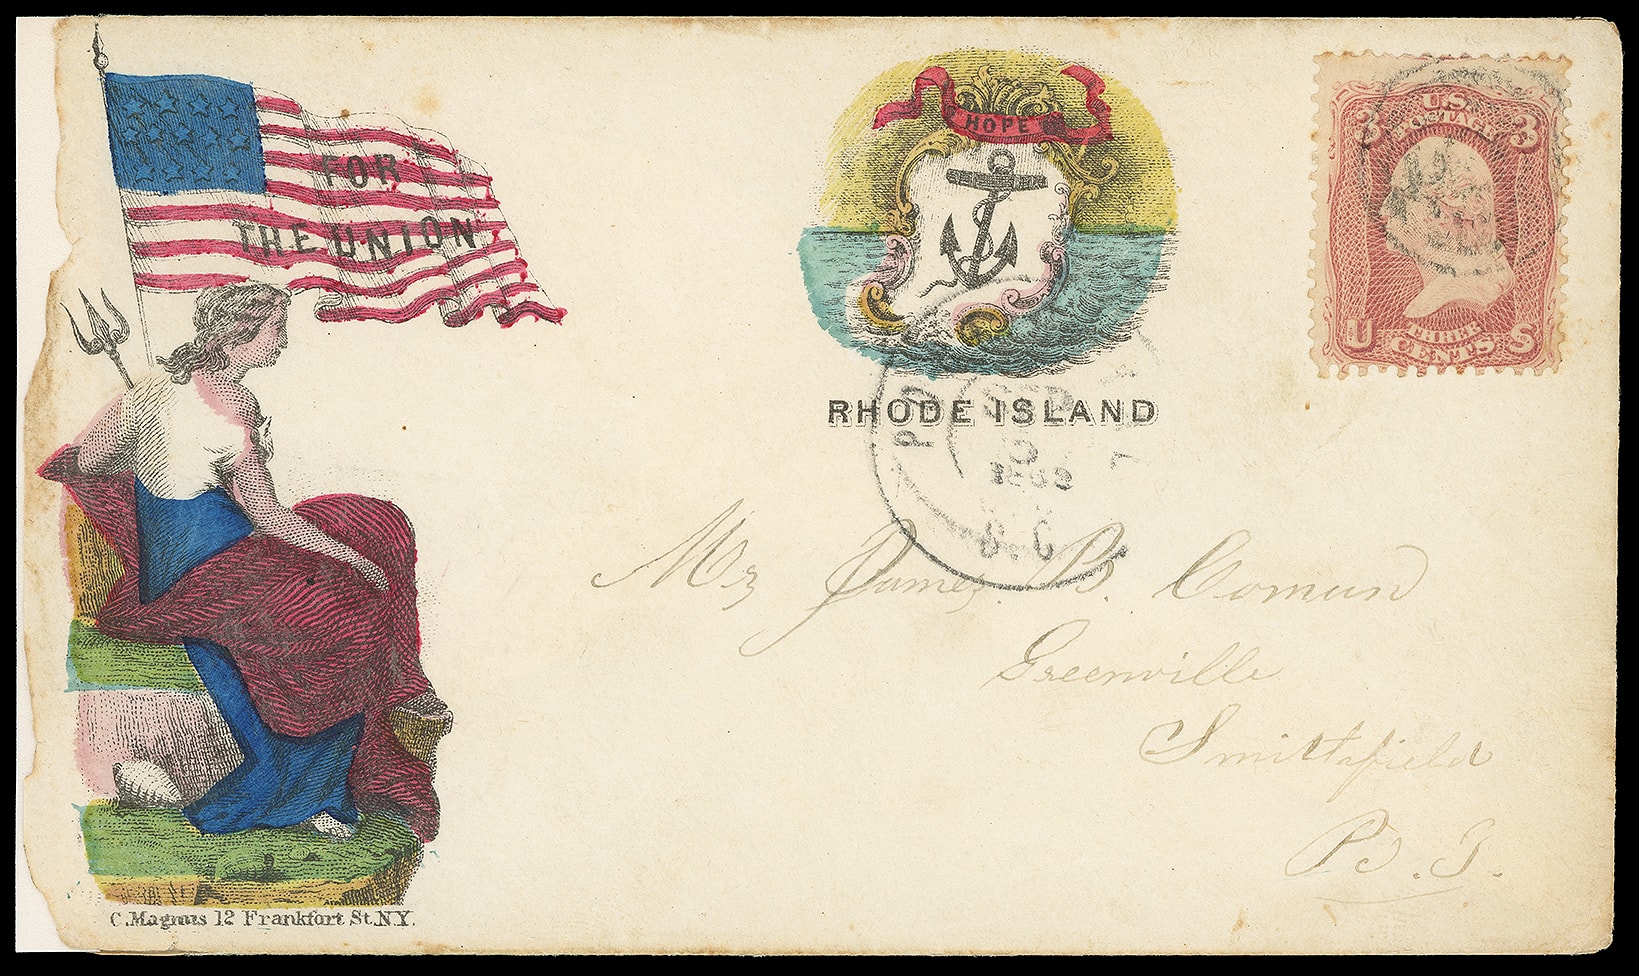 FOR
THE UNION
HOPE
RHODE ISLAND
U.S.
POSTAGE
3 3
U THREE S
CENTS
SEP
1862
S.C
Mr James. B.
Greenville
Smithfield
R. I.
C. Magnus 12 Frankfort St. N.Y.